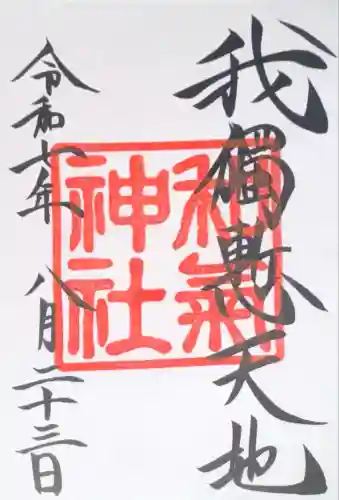 我獨慙天地
和氣
神社
令和七年八月二十三日